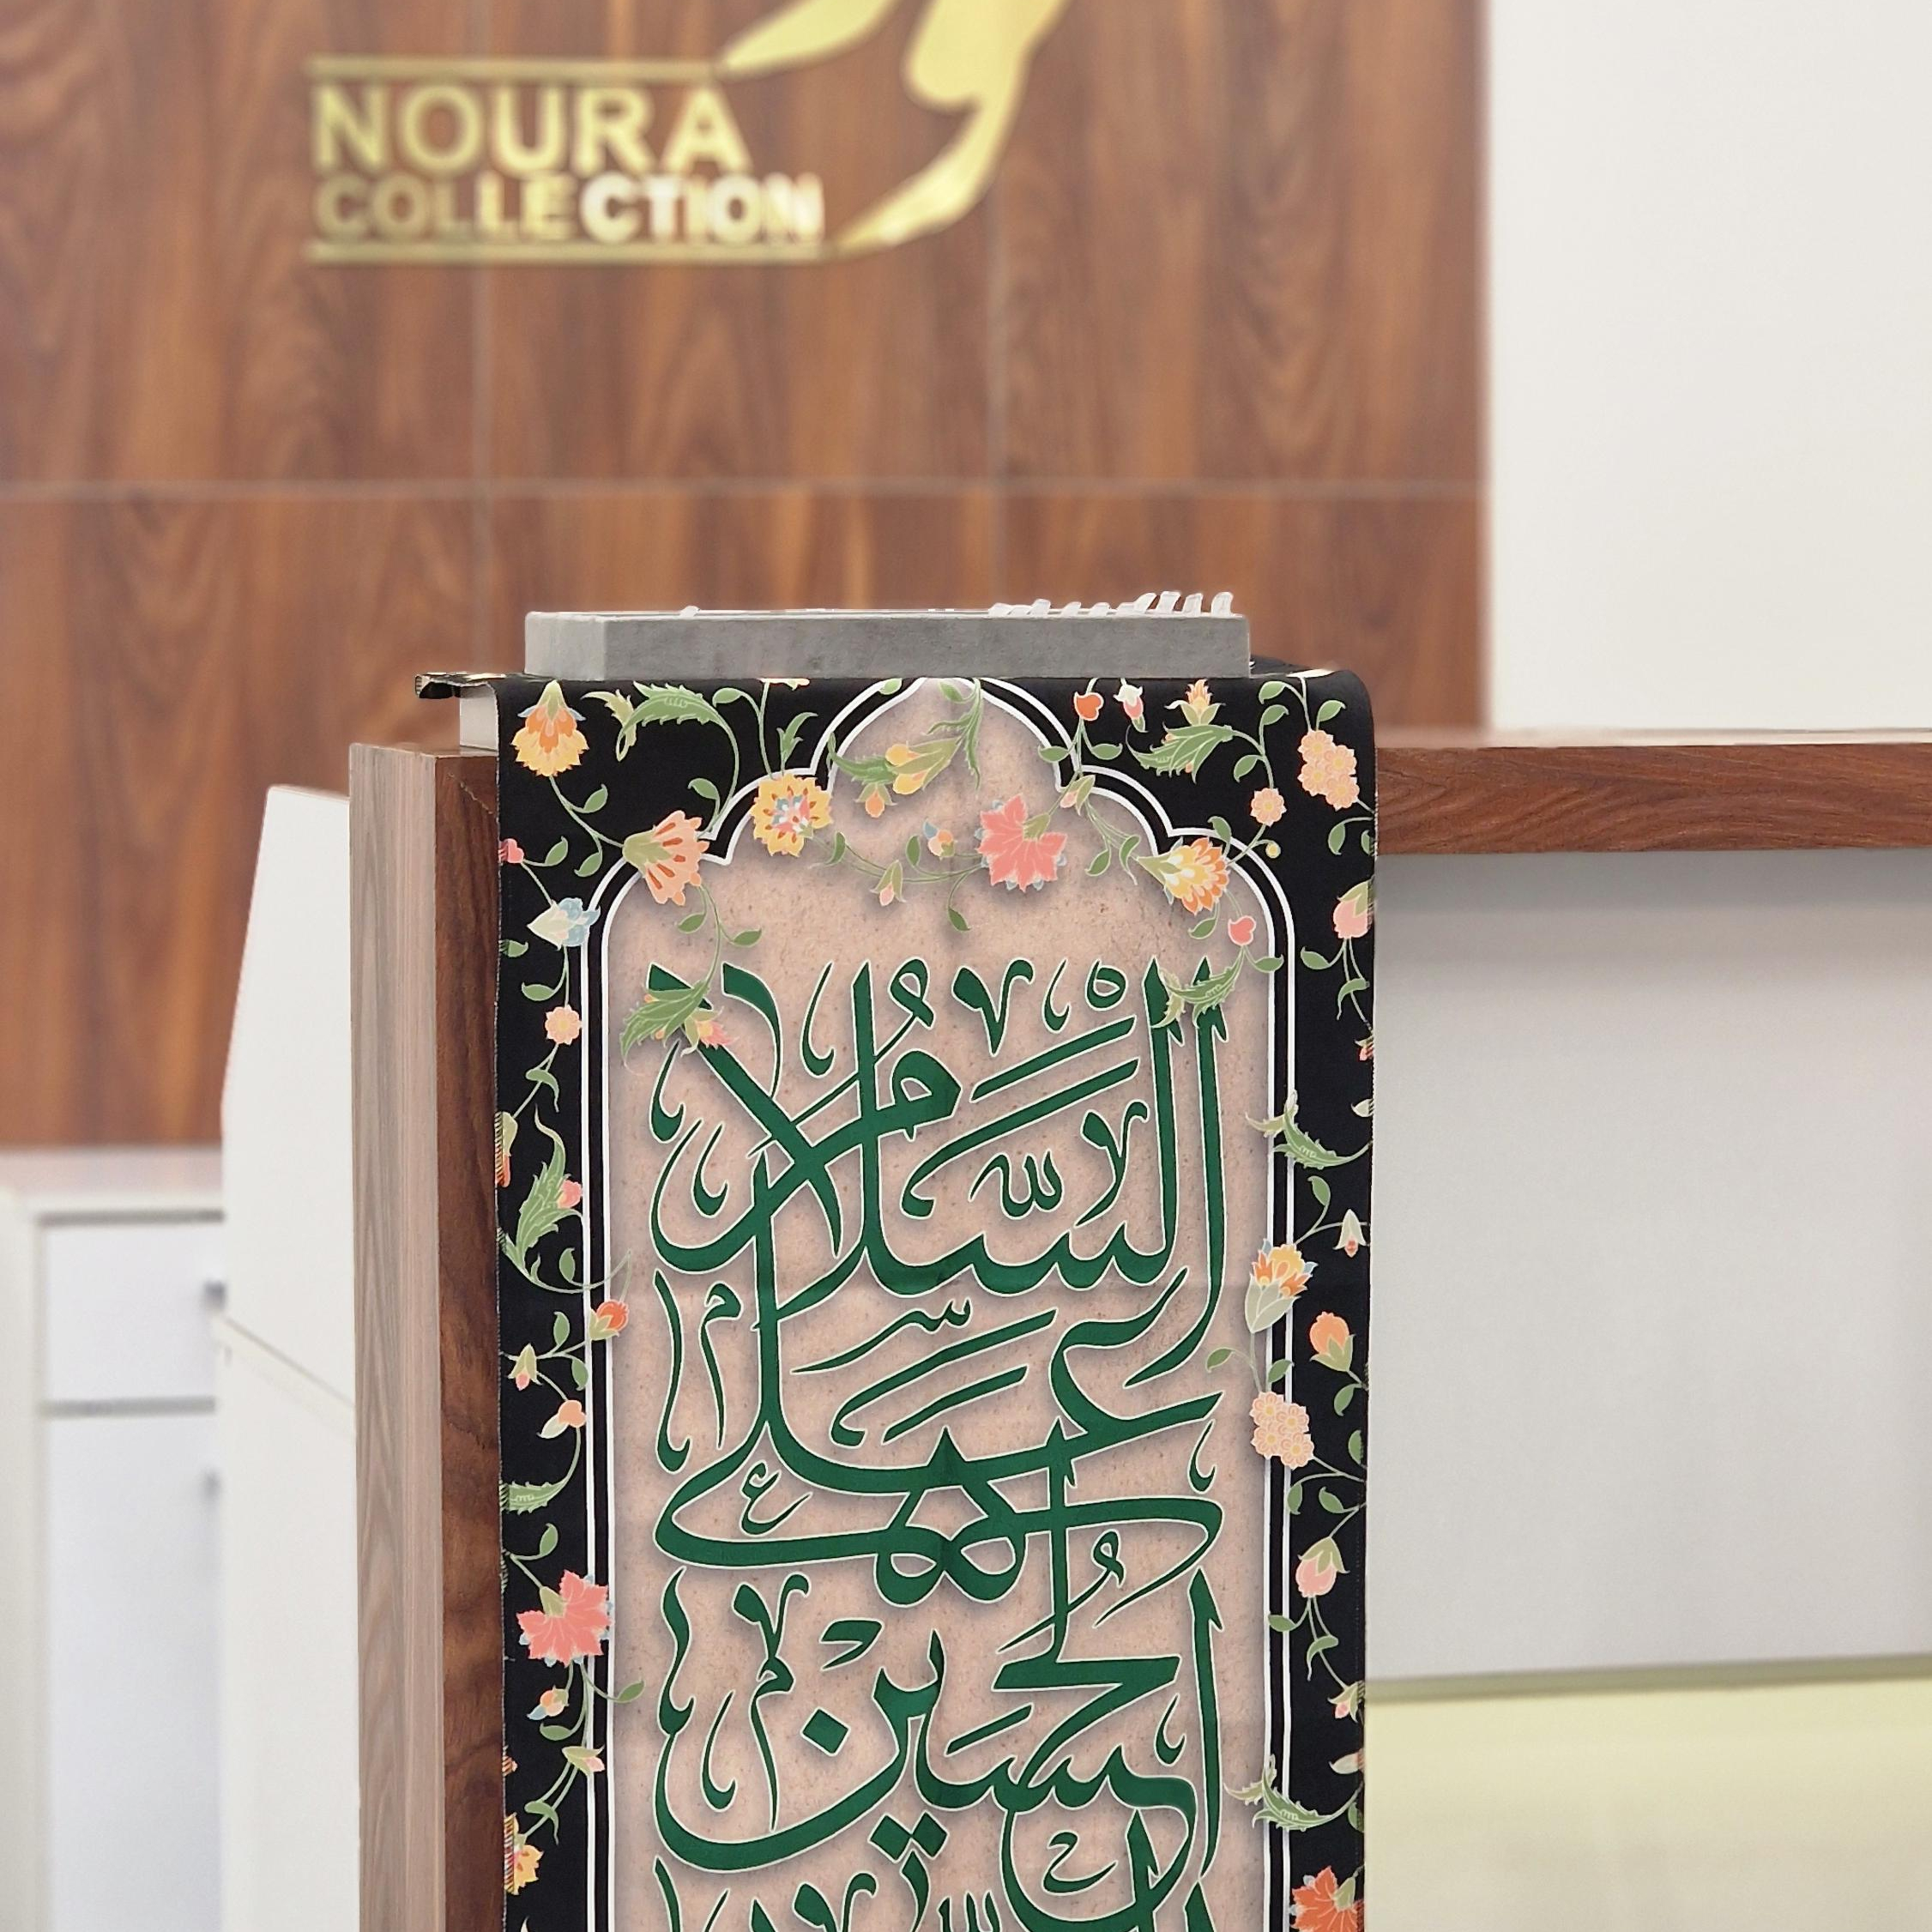 NOURA
COLLECTION
السَّلامُ
عَلَى
الحُسَيْنِ